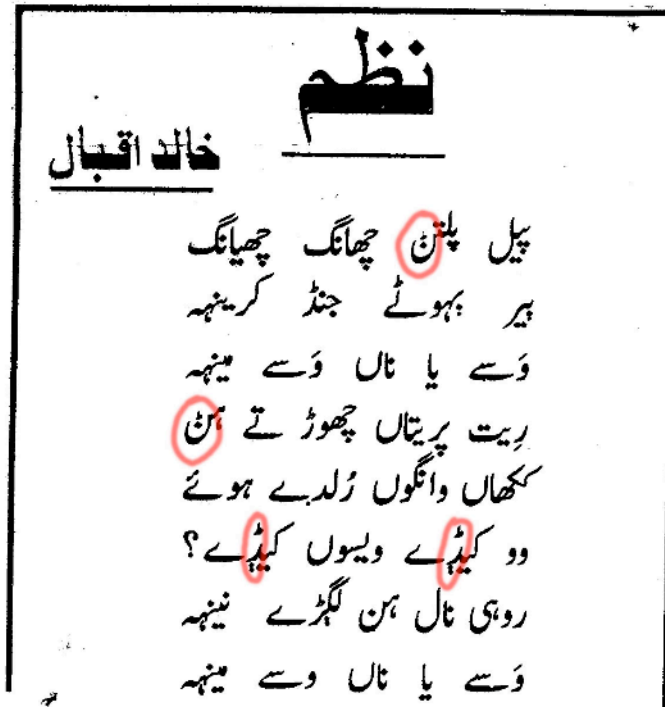 نظم
خالد اقبال
پیل پلتݨ چھانگ چھیانگ
بیر بہوٹے جنڈ کرینہہ
وَسے یا ناں وَسے مینہہ
رِیت پریتاں چھوڑ تے ہݨ
ککھاں وانگوں رُلدے ہوئے
وو کیݙے ویسوں کیݙے؟
روہی نال ہن لگڑے نینہہ
وَسے یا ناں وسے مینہہ